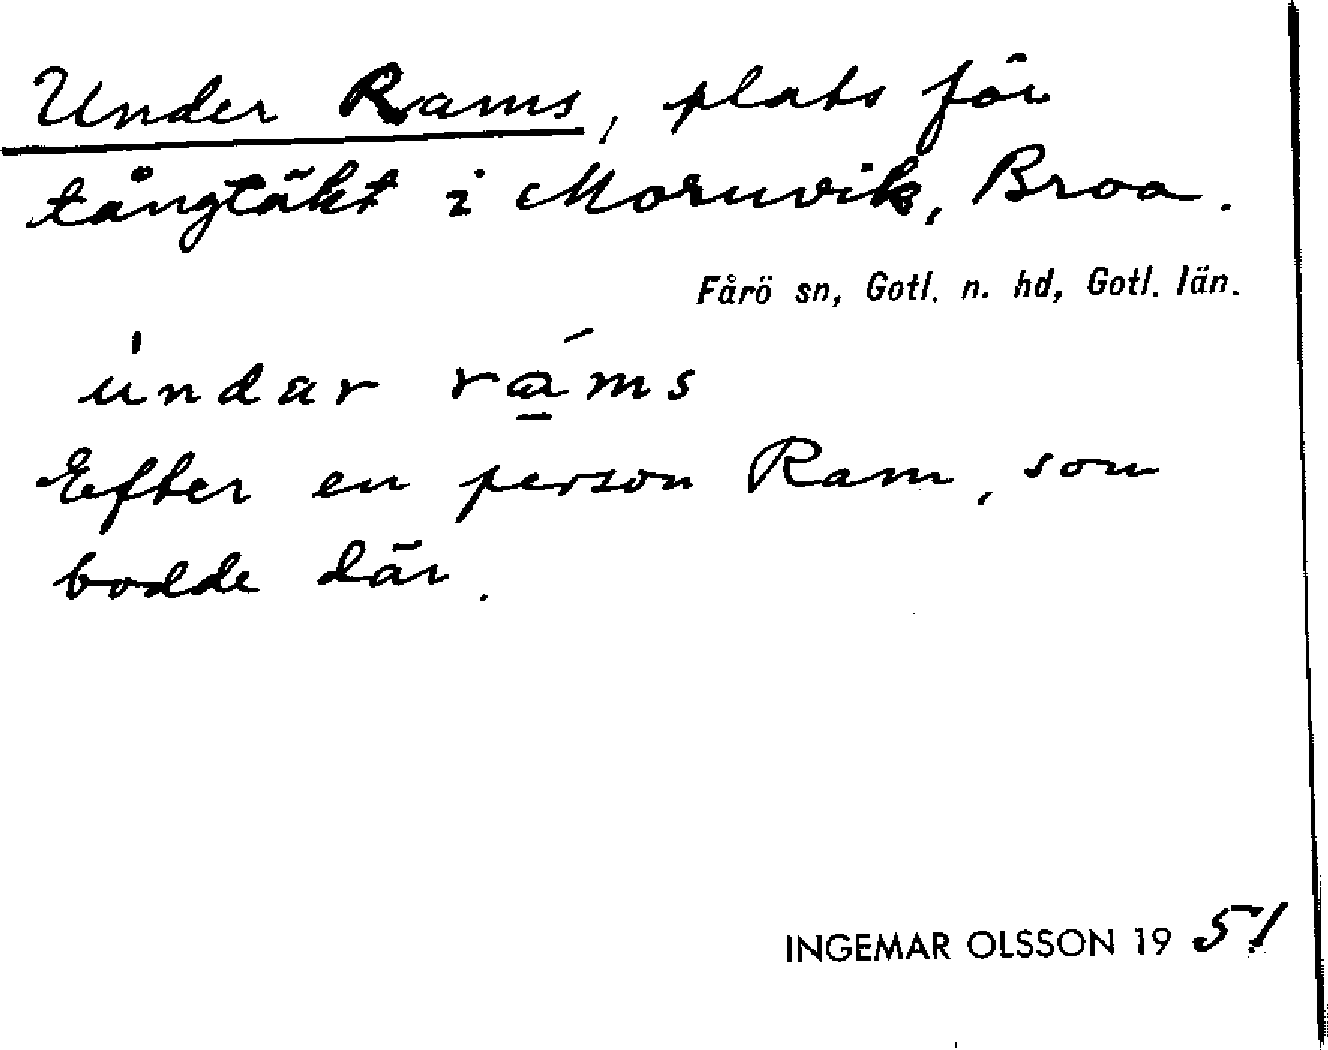 Under Rams, plats för
tångtäkt i Moruvik, Broa.
Fårö sn, Gotl. n. hd, Gotl. län.
ùndar rá̱ms
Efter en person Ram, som
bodde där.
INGEMAR OLSSON 19 51